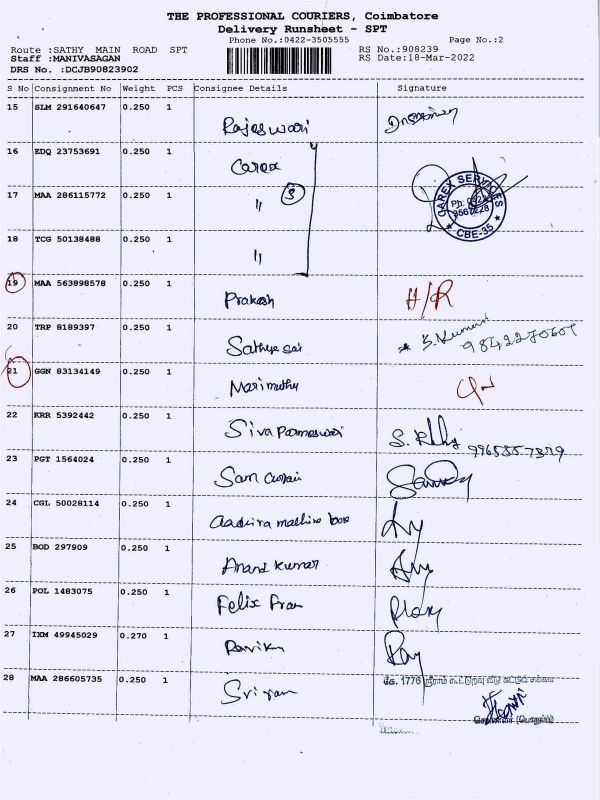 THE PROFESSIONAL COURIERS, Coimbatore
Delivery Runsheet - SPT
Phone No.:0422-3505555 Page No.:2
Route :SATHY MAIN ROAD SPT RS No.:908239
Staff :MANIVASAGAN RS Date:18-Mar-2022
DRS No. :DCJB90823902
S No Consignment No Weight PCS Consignee Details Signature
15 SLM 291640647 0.250 1 Rajeswari
16 EDQ 23753691 0.250 1 Carex
CAREX SERVICES
CBE-35
17 MAA 286115772 0.250 1 " 3
18 TCG 50138488 0.250 1 "
19 MAA 563898578 0.250 1 Prakash H/R
20 TRP 8189397 0.250 1 Sathya sai S. Kumar
21 GGN 83134149 0.250 1 Marimuthu
22 KRR 5392442 0.250 1 Siva Parmeswari
23 PGT 1564024 0.250 1 Sam
24 CGL 50028114 0.250 1 Aadhira machine
25 BOD 297909 0.250 1 Anand kumar
26 POL 1483075 0.250 1 Felix Fran
27 IXM 49945029 0.270 1 Raviku
28 MAA 286605735 0.250 1 Sriram
கே. 1776